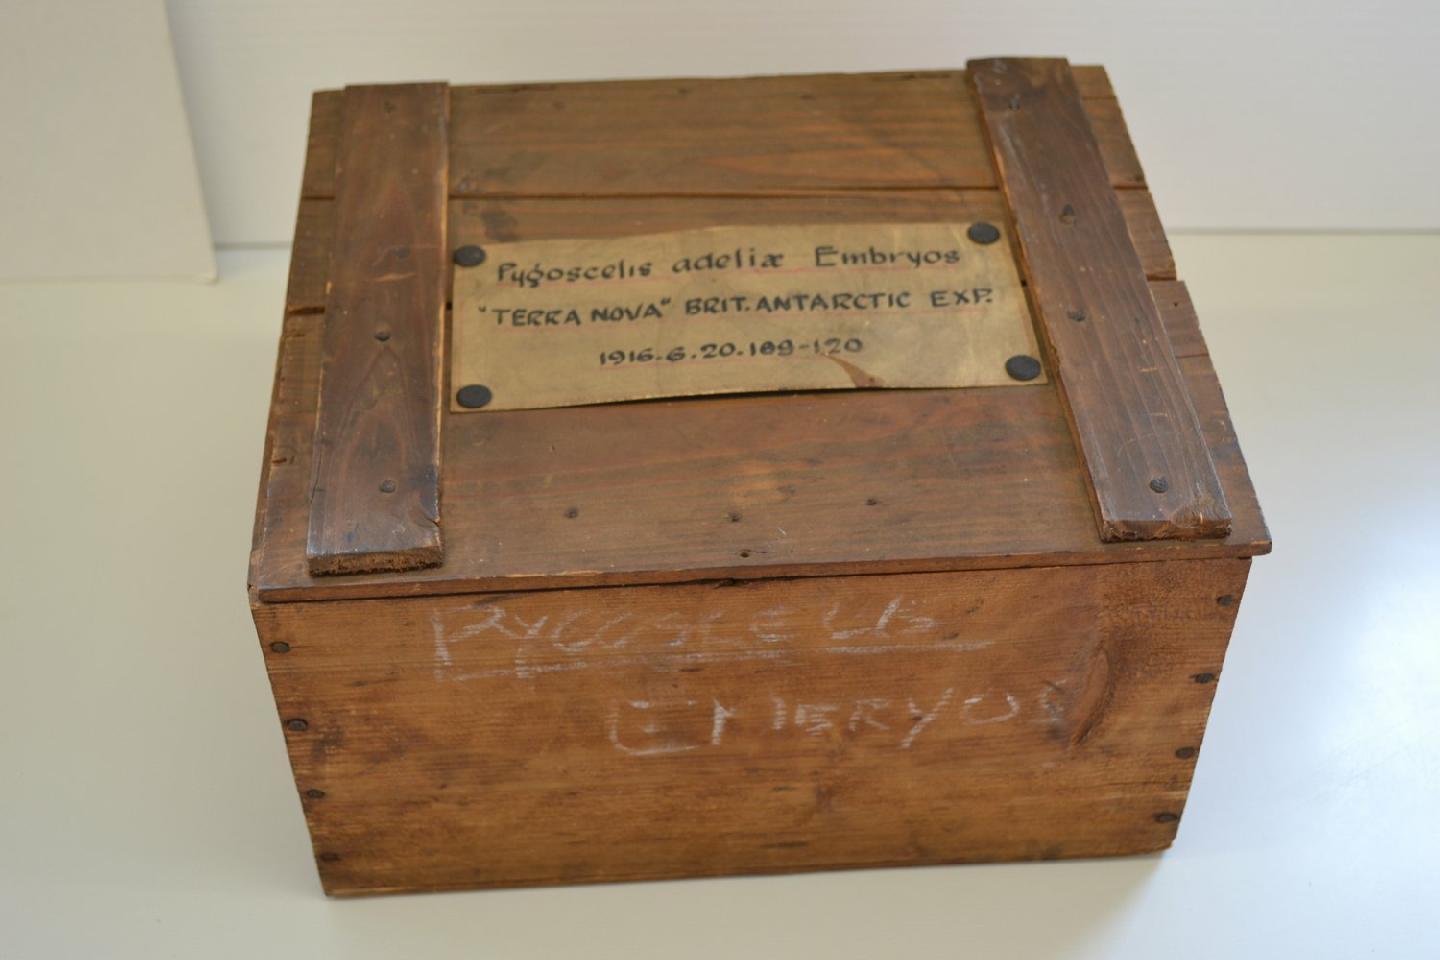 Pygoscelis adeliæ Embryos
"TERRA NOVA" BRIT. ANTARCTIC EXP.
1916.6.20.109-120
PYGOSCELIS
EMBRYOS